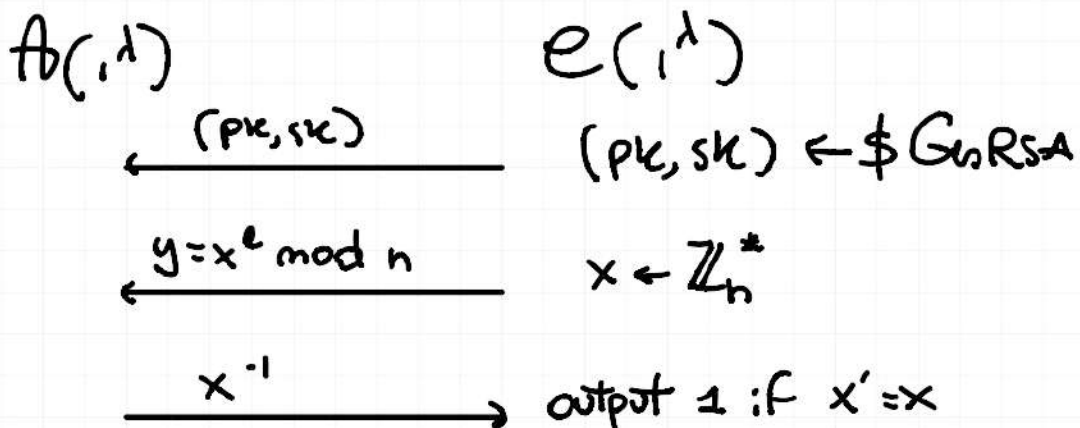 A(1^λ) C(1^λ)
(pk, sk) (pk, sk) ←$ GenRSA
y = x^e mod n x ← ℤ_n^*
x^-1 output 1 if x' = x